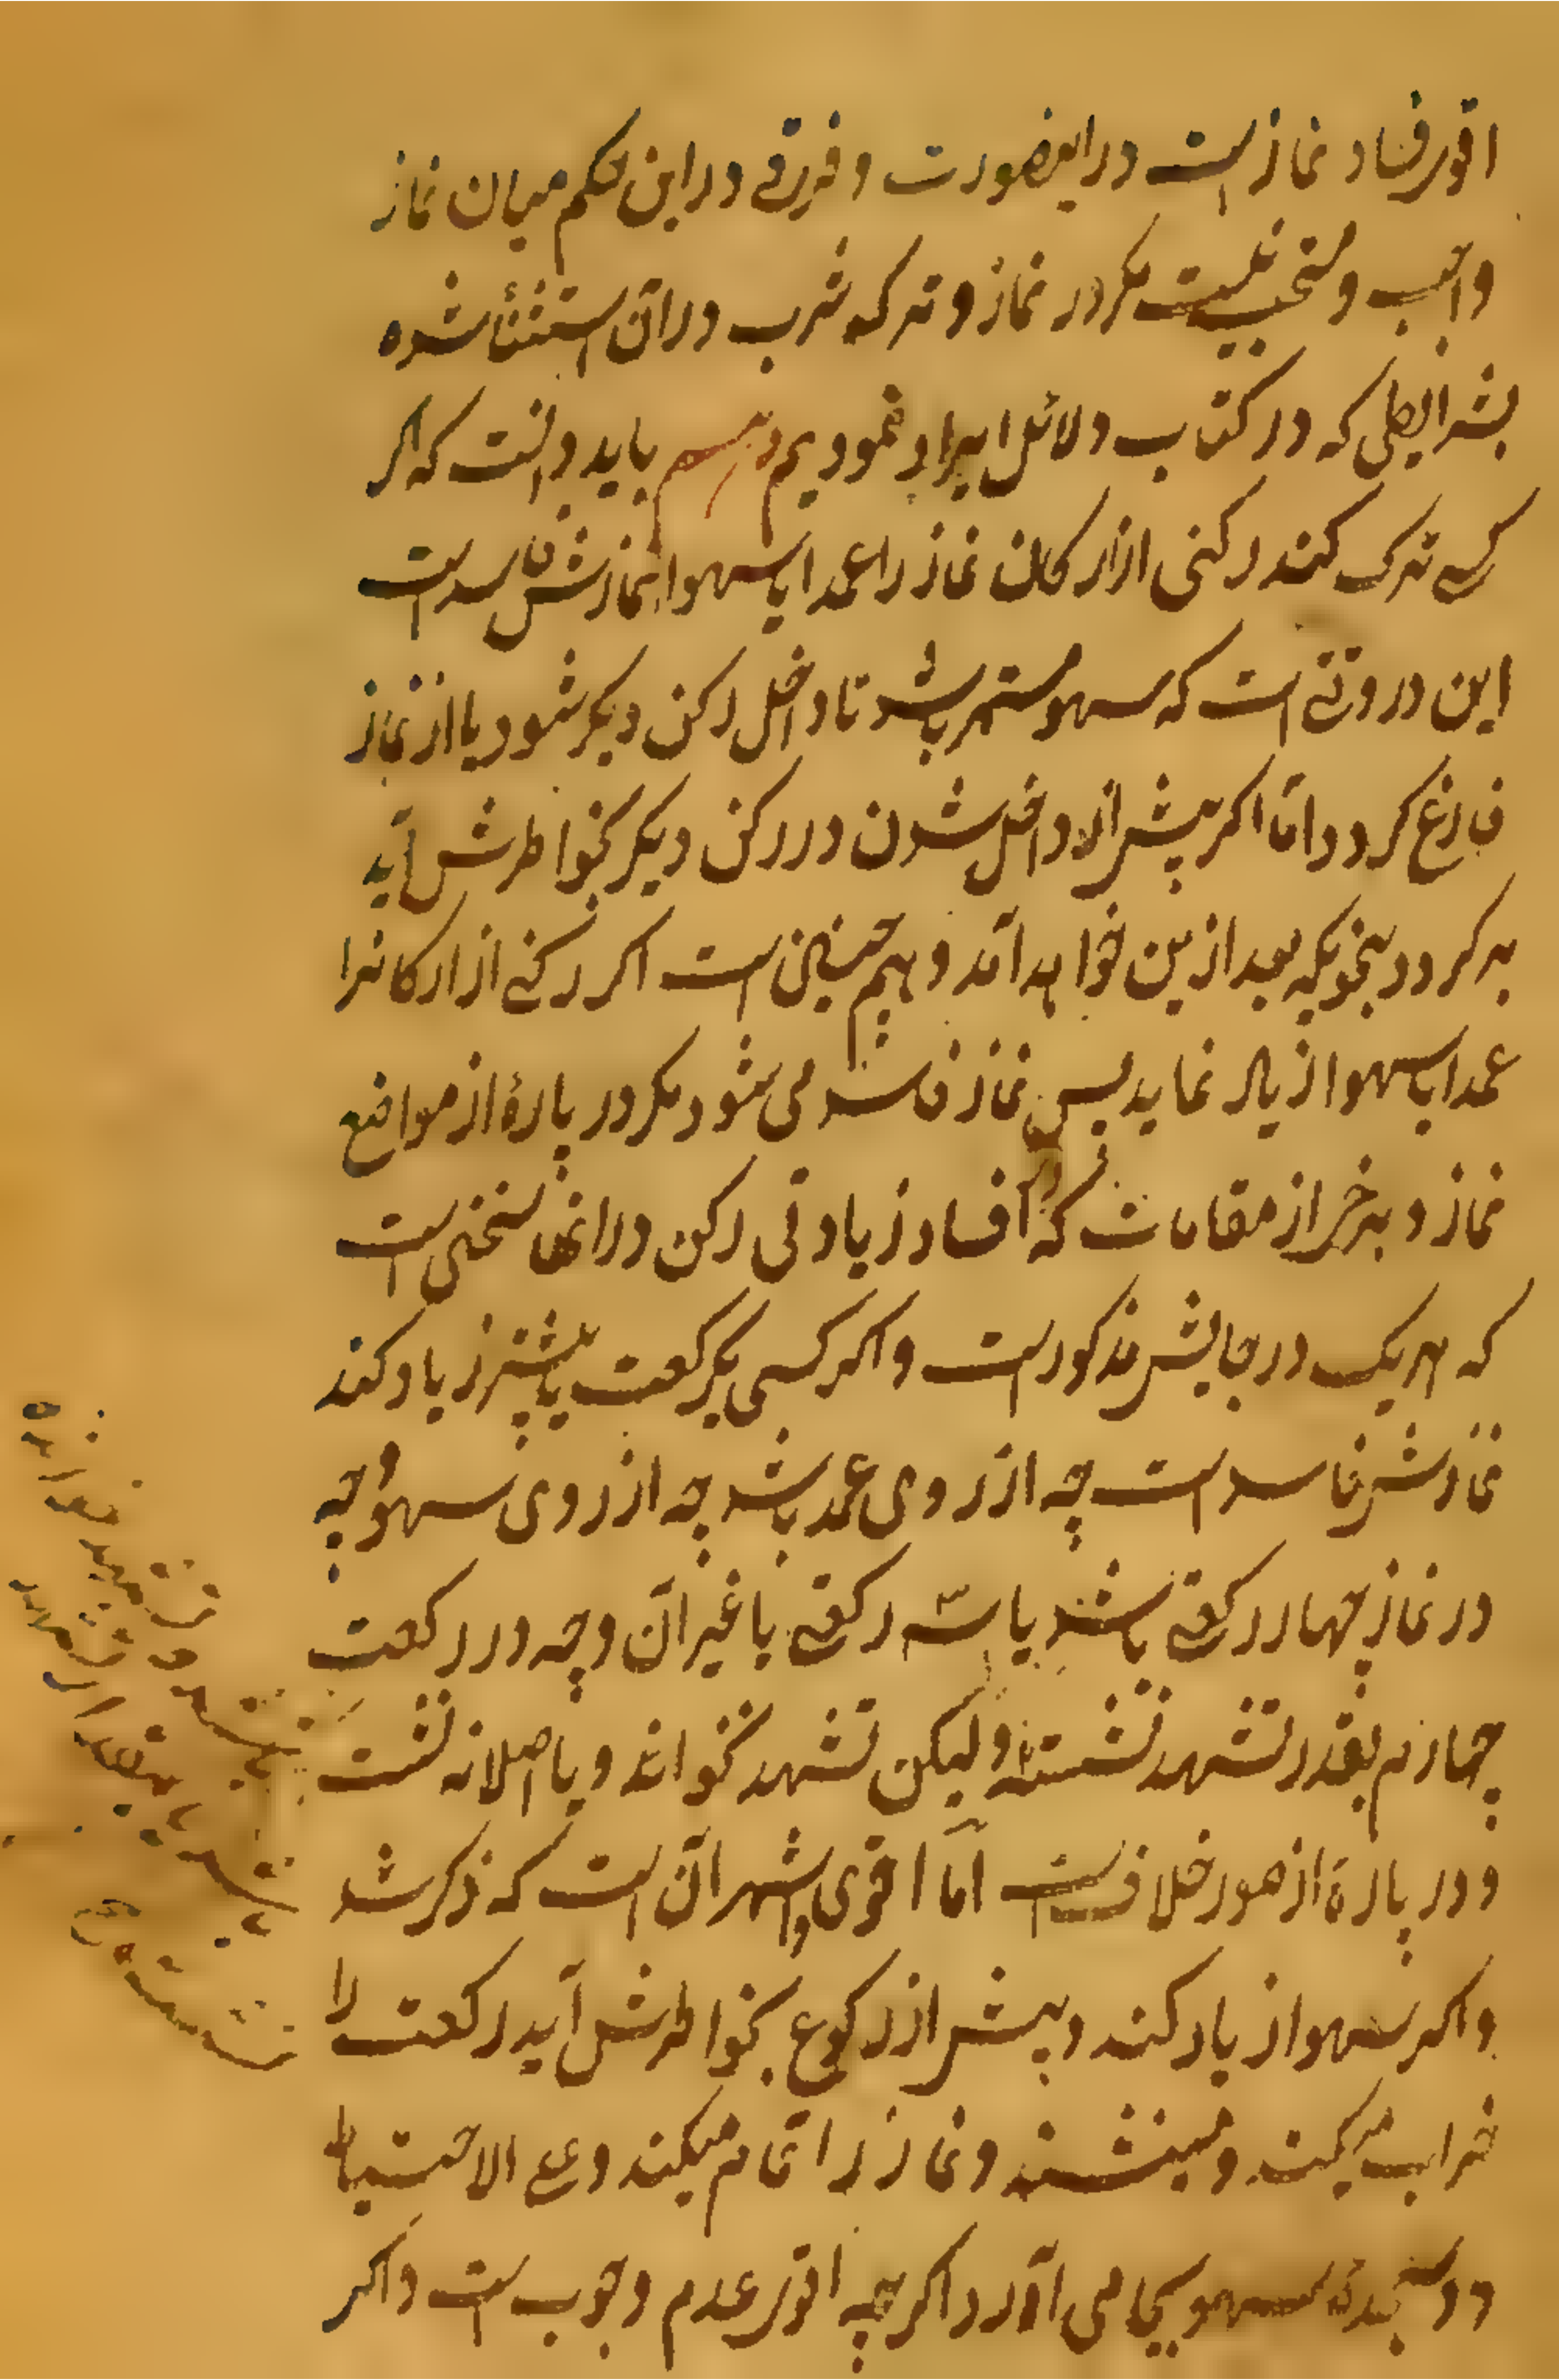 اقوی فساد نماز است در اینصورت و فرقی در این حکم میان نماز
واجب و مستحب نیست مکر در نماز وتر که شرب در آن استثنأ شده
بشرایطی که در کتاب دلائل ایراد نمودیم دهم باید دانست که اکر
کسی ترک کند رکنی از ارکان نماز را عمدا یا سهوا نمازش فاسد است
این در وقتی است که سهو مستمر باشد تا داخل رکن دیکر شود یا از نماز
فارغ کردد و اما اکر پیش از داخل شدن در رکن دیکر بخواطرش آید
بر کردد بنحویکه بعد ازین خواهد آمد و هم چنین است اکر رکنی از ارکانرا
عمدا یا سهوا زیاد نماید پس نماز فاسد می شود مکر در پارهٔ از مواضع
نماز و برخی از مقامات که افساد زیادتی رکن در انها سخنی است
که هر یک در جایش مذکور است و اکر کسی یکرکعت یا بیشتر زیاد کند
نمازش فاسد است چه از روی عمد باشد چه از روی سهو و چه
در نماز چهار رکعتی باشد یا سه رکعتی یا غیر آن و چه در رکعت
چهارم بقدر تشهد نشسته و لیکن تشهد نخواند و یا اصلا نه نشست
و در پارهٔ از صور خلاف است اما اقوی و اشهر آن است که ذکر شد
و اکر سهوا زیاد کند و پیش از رکوع بخواطرش آید رکعت را
خراب میکند و مینشیند و نماز را تمام میکند و علی الاحتیاط
دو سجدهٔ سهو بجا می آورد اکر چه اقوی عدم وجوب است و اکر